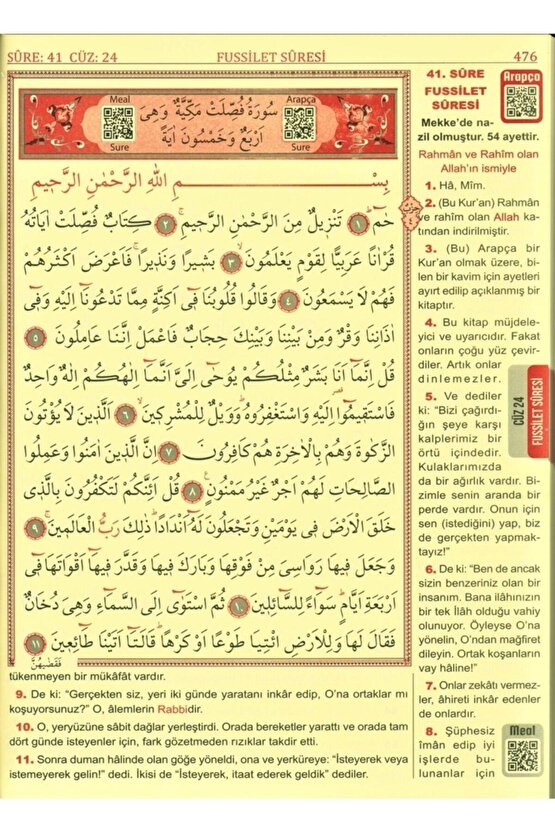 SÛRE: 41 CÜZ: 24
FUSSİLET SÛRESİ
476
Meal
Sure
سُورَةُ فُصِّلَتْ مَكِّيَّةٌ وَهِىَ
اَرْبَعٌ وَخَمْسُونَ اٰيَةً
Arapça
Sure
بِسْمِ اللهِ الرَّحْمٰنِ الرَّحِيمِ
حٰمٓ ﴿١﴾ تَنْزِيلٌ مِنَ الرَّحْمٰنِ الرَّحِيمِ ﴿٢﴾ كِتَابٌ فُصِّلَتْ اٰيَاتُهُ
قُرْاٰنًا عَرَبِيًّا لِقَوْمٍ يَعْلَمُونَ ﴿٣﴾ بَشِيرًا وَنَذِيرًا فَاَعْرَضَ اَكْثَرُهُمْ
فَهُمْ لَا يَسْمَعُونَ ﴿٤﴾ وَقَالُوا قُلُوبُنَا فِى اَكِنَّةٍ مِمَّا تَدْعُونَا اِلَيْهِ وَفِى
اٰذَانِنَا وَقْرٌ وَمِنْ بَيْنِنَا وَبَيْنِكَ حِجَابٌ فَاعْمَلْ اِنَّنَا عَامِلُونَ ﴿٥﴾
قُلْ اِنَّمَا اَنَا بَشَرٌ مِثْلُكُمْ يُوحٰى اِلَىَّ اَنَّمَا اِلٰهُكُمْ اِلٰهٌ وَاحِدٌ
فَاسْتَقِيمُوا اِلَيْهِ وَاسْتَغْفِرُوهُ وَوَيْلٌ لِلْمُشْرِكِينَ ﴿٦﴾ اَلَّذِينَ لَا يُؤْتُونَ
الزَّكٰوةَ وَهُمْ بِالْاٰخِرَةِ هُمْ كَافِرُونَ ﴿٧﴾ اِنَّ الَّذِينَ اٰمَنُوا وَعَمِلُوا
الصَّالِحَاتِ لَهُمْ اَجْرٌ غَيْرُ مَمْنُونٍ ﴿٨﴾ قُلْ اَئِنَّكُمْ لَتَكْفُرُونَ بِالَّذِى
خَلَقَ الْاَرْضَ فِى يَوْمَيْنِ وَتَجْعَلُونَ لَهُ اَنْدَادًا ذٰلِكَ رَبُّ الْعَالَمِينَ ﴿٩﴾
وَجَعَلَ فِيهَا رَوَاسِىَ مِنْ فَوْقِهَا وَبَارَكَ فِيهَا وَقَدَّرَ فِيهَا اَقْوَاتَهَا فِى
اَرْبَعَةِ اَيَّامٍ سَوَاءً لِلسَّائِلِينَ ﴿١٠﴾ ثُمَّ اسْتَوٰى اِلَى السَّمَاءِ وَهِىَ دُخَانٌ
فَقَالَ لَهَا وَلِلْاَرْضِ ائْتِيَا طَوْعًا اَوْ كَرْهًا قَالَتَا اَتَيْنَا طَائِعِينَ ﴿١١﴾
فَقَضٰيهُنَّ
حزب
٤
Arapça
41. SÛRE
FUSSİLET
SÛRESİ
Mekke’de na-
zil olmuştur. 54 ayettir.
Rahmân ve Rahîm olan
Allah’ın ismiyle
1. Hâ, Mîm.
2. (Bu Kur’an) Rahmân
ve rahîm olan Allah ka-
tından indirilmiştir.
3. (Bu) Arapça bir
Kur’an olmak üzere, bi-
len bir kavim için ayetleri
ayırt edilip açıklanmış bir
kitaptır.
4. Bu kitap müjdele-
yici ve uyarıcıdır. Fakat
onların çoğu yüz çevir-
diler. Artık onlar
dinlemezler.
5. Ve dediler
ki: “Bizi çağırdı-
ğın şeye karşı
kalplerimiz bir
örtü içindedir.
Kulaklarımızda
da bir ağırlık vardır. Bi-
zimle senin aranda bir
perde vardır. Onun için
sen (istediğini) yap, biz
de gerçekten yapmak-
tayız!”
6. De ki: “Ben de ancak
sizin benzeriniz olan bir
insanım. Bana ilâhınızın
bir tek İlâh olduğu vahiy
olunuyor. Öyleyse O’na
yönelin, O’ndan mağfiret
dileyin. Ortak koşanların
vay hâline!”
7. Onlar zekâtı vermez-
ler, âhireti inkâr edenler
de onlardır.
8. Şüphesiz
îmân edip iyi
işlerde bu-
lunanlar için
Meal
CÜZ 24
FUSSİLET SÛRESİ
tükenmeyen bir mükâfât vardır.
9. De ki: “Gerçekten siz, yeri iki günde yaratanı inkâr edip, O’na ortaklar mı
koşuyorsunuz?” O, âlemlerin Rabbidir.
10. O, yeryüzüne sâbit dağlar yerleştirdi. Orada bereketler yarattı ve orada tam
dört günde isteyenler için, fark gözetmeden rızıklar takdir etti.
11. Sonra duman hâlinde olan göğe yöneldi, ona ve yerküreye: “İsteyerek veya
istemeyerek gelin!” dedi. İkisi de “İsteyerek, itaat ederek geldik” dediler.